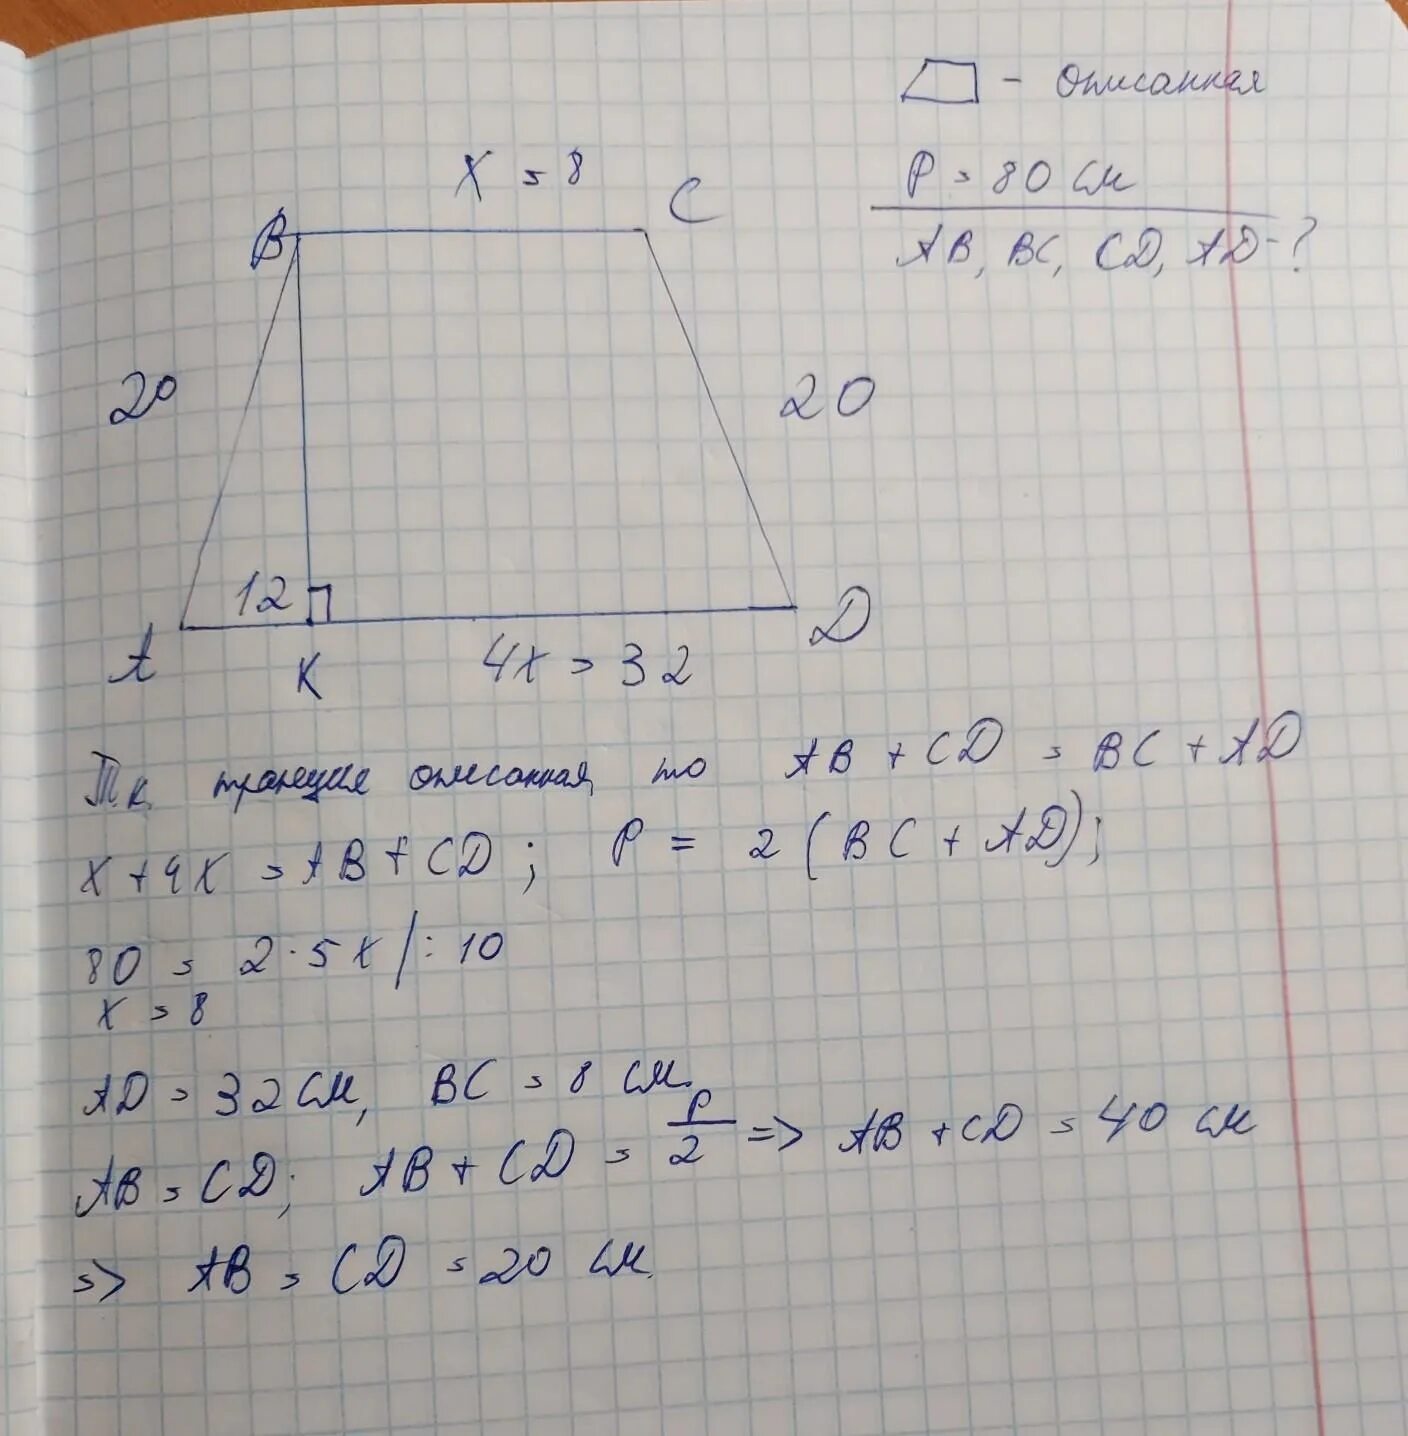 - Описанная
P = 80 см
AB, BC, CD, AD - ?
X = 8
B
C
20
20
12
A
K
D
4x = 32
Т.к. трапеция описанная, то AB + CD = BC + AD
x + 4x = AB + CD ; P = 2 (BC + AD);
80 = 2·5x /: 10
x = 8
AD = 32 см, BC = 8 см.
AB = CD; AB + CD = P/2 => AB + CD = 40 см
=> AB = CD = 20 см.